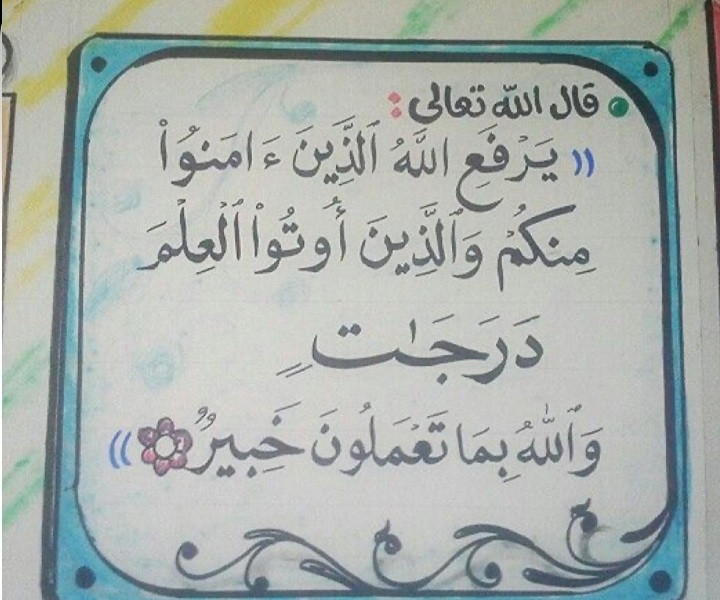 قال الله تعالى :
(( يَرْفَعِ اللَّهُ ٱلَّذِينَ ءَامَنُوا۟
مِنكُمْ وَٱلَّذِينَ أُوتُوا۟ ٱلْعِلْمَ
دَرَجَٰتٍ
وَٱللَّهُ بِمَا تَعْمَلُونَ خَبِيرٌ ))